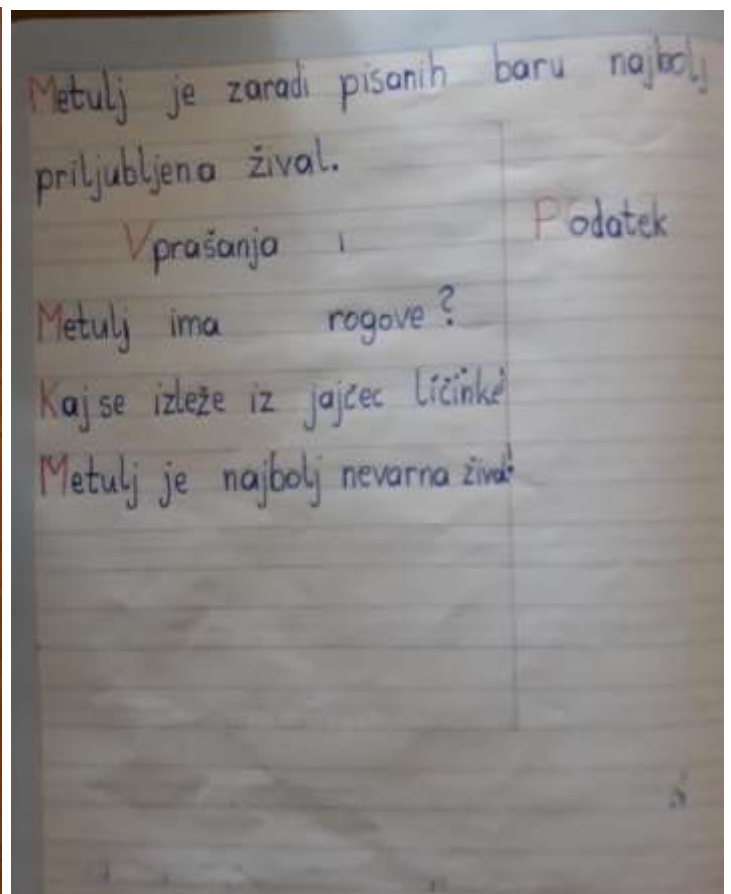 Metulj je zaradi pisanih baru najbolj
priljubljena žival.
Vprašanja
Podatek
Metulj ima rogove?
Kaj se izleže iz jajčec ličinke
Metulj je najbolj nevarna žival